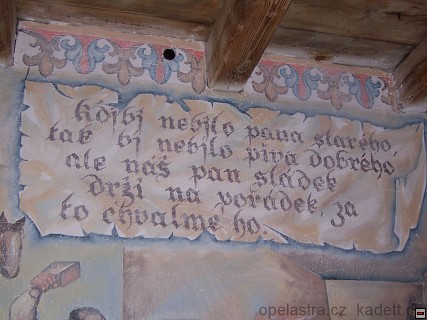 kdjbj nebjlo pana starého,
tak bj nebjlo pjva dobrého
ale náš pan sládek
drží na pořádek, za
to chvalme ho.
opelastra.cz kadett.